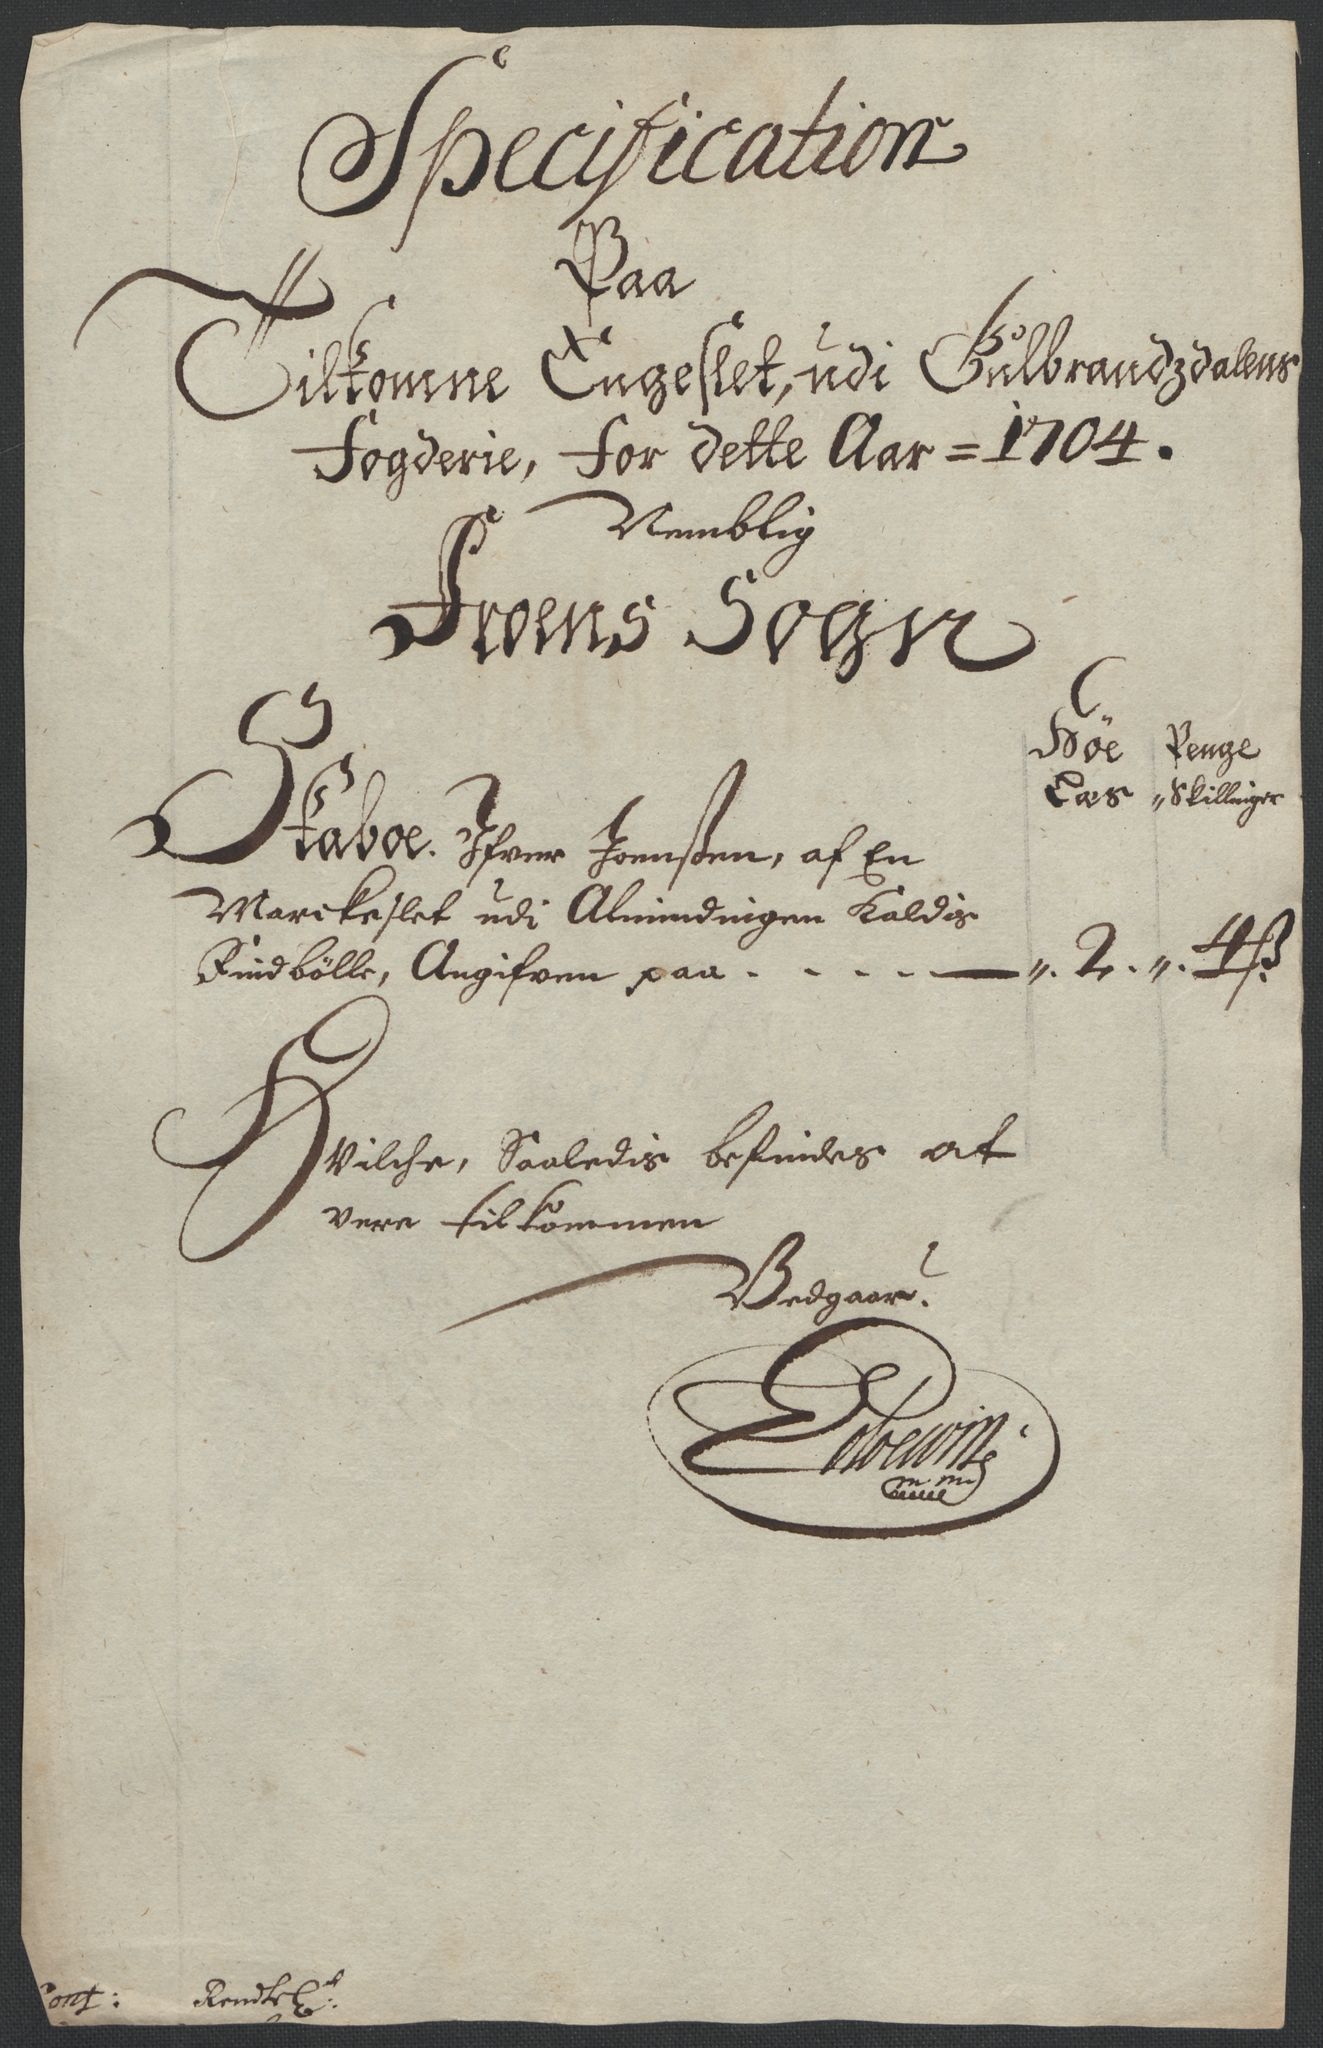 Specification
Paa
Tilkomne Engeslet, udi Gulbrandzdalens
fogderie, for dette Aar = 1704.
Nemblig
Froens Sogn
Höe Penge
Læs „ Skillinger
Staboe. Ifver Joenßen, af En
Marckeslet udi Almindingen Kaldis
Findbölle, Angifven paa . . . . . — „. 2. „. 4 ß.
Hvilche, Saaledis befindes at
vere tilkommen
Vedgaar.
m m
Conf: Rendte